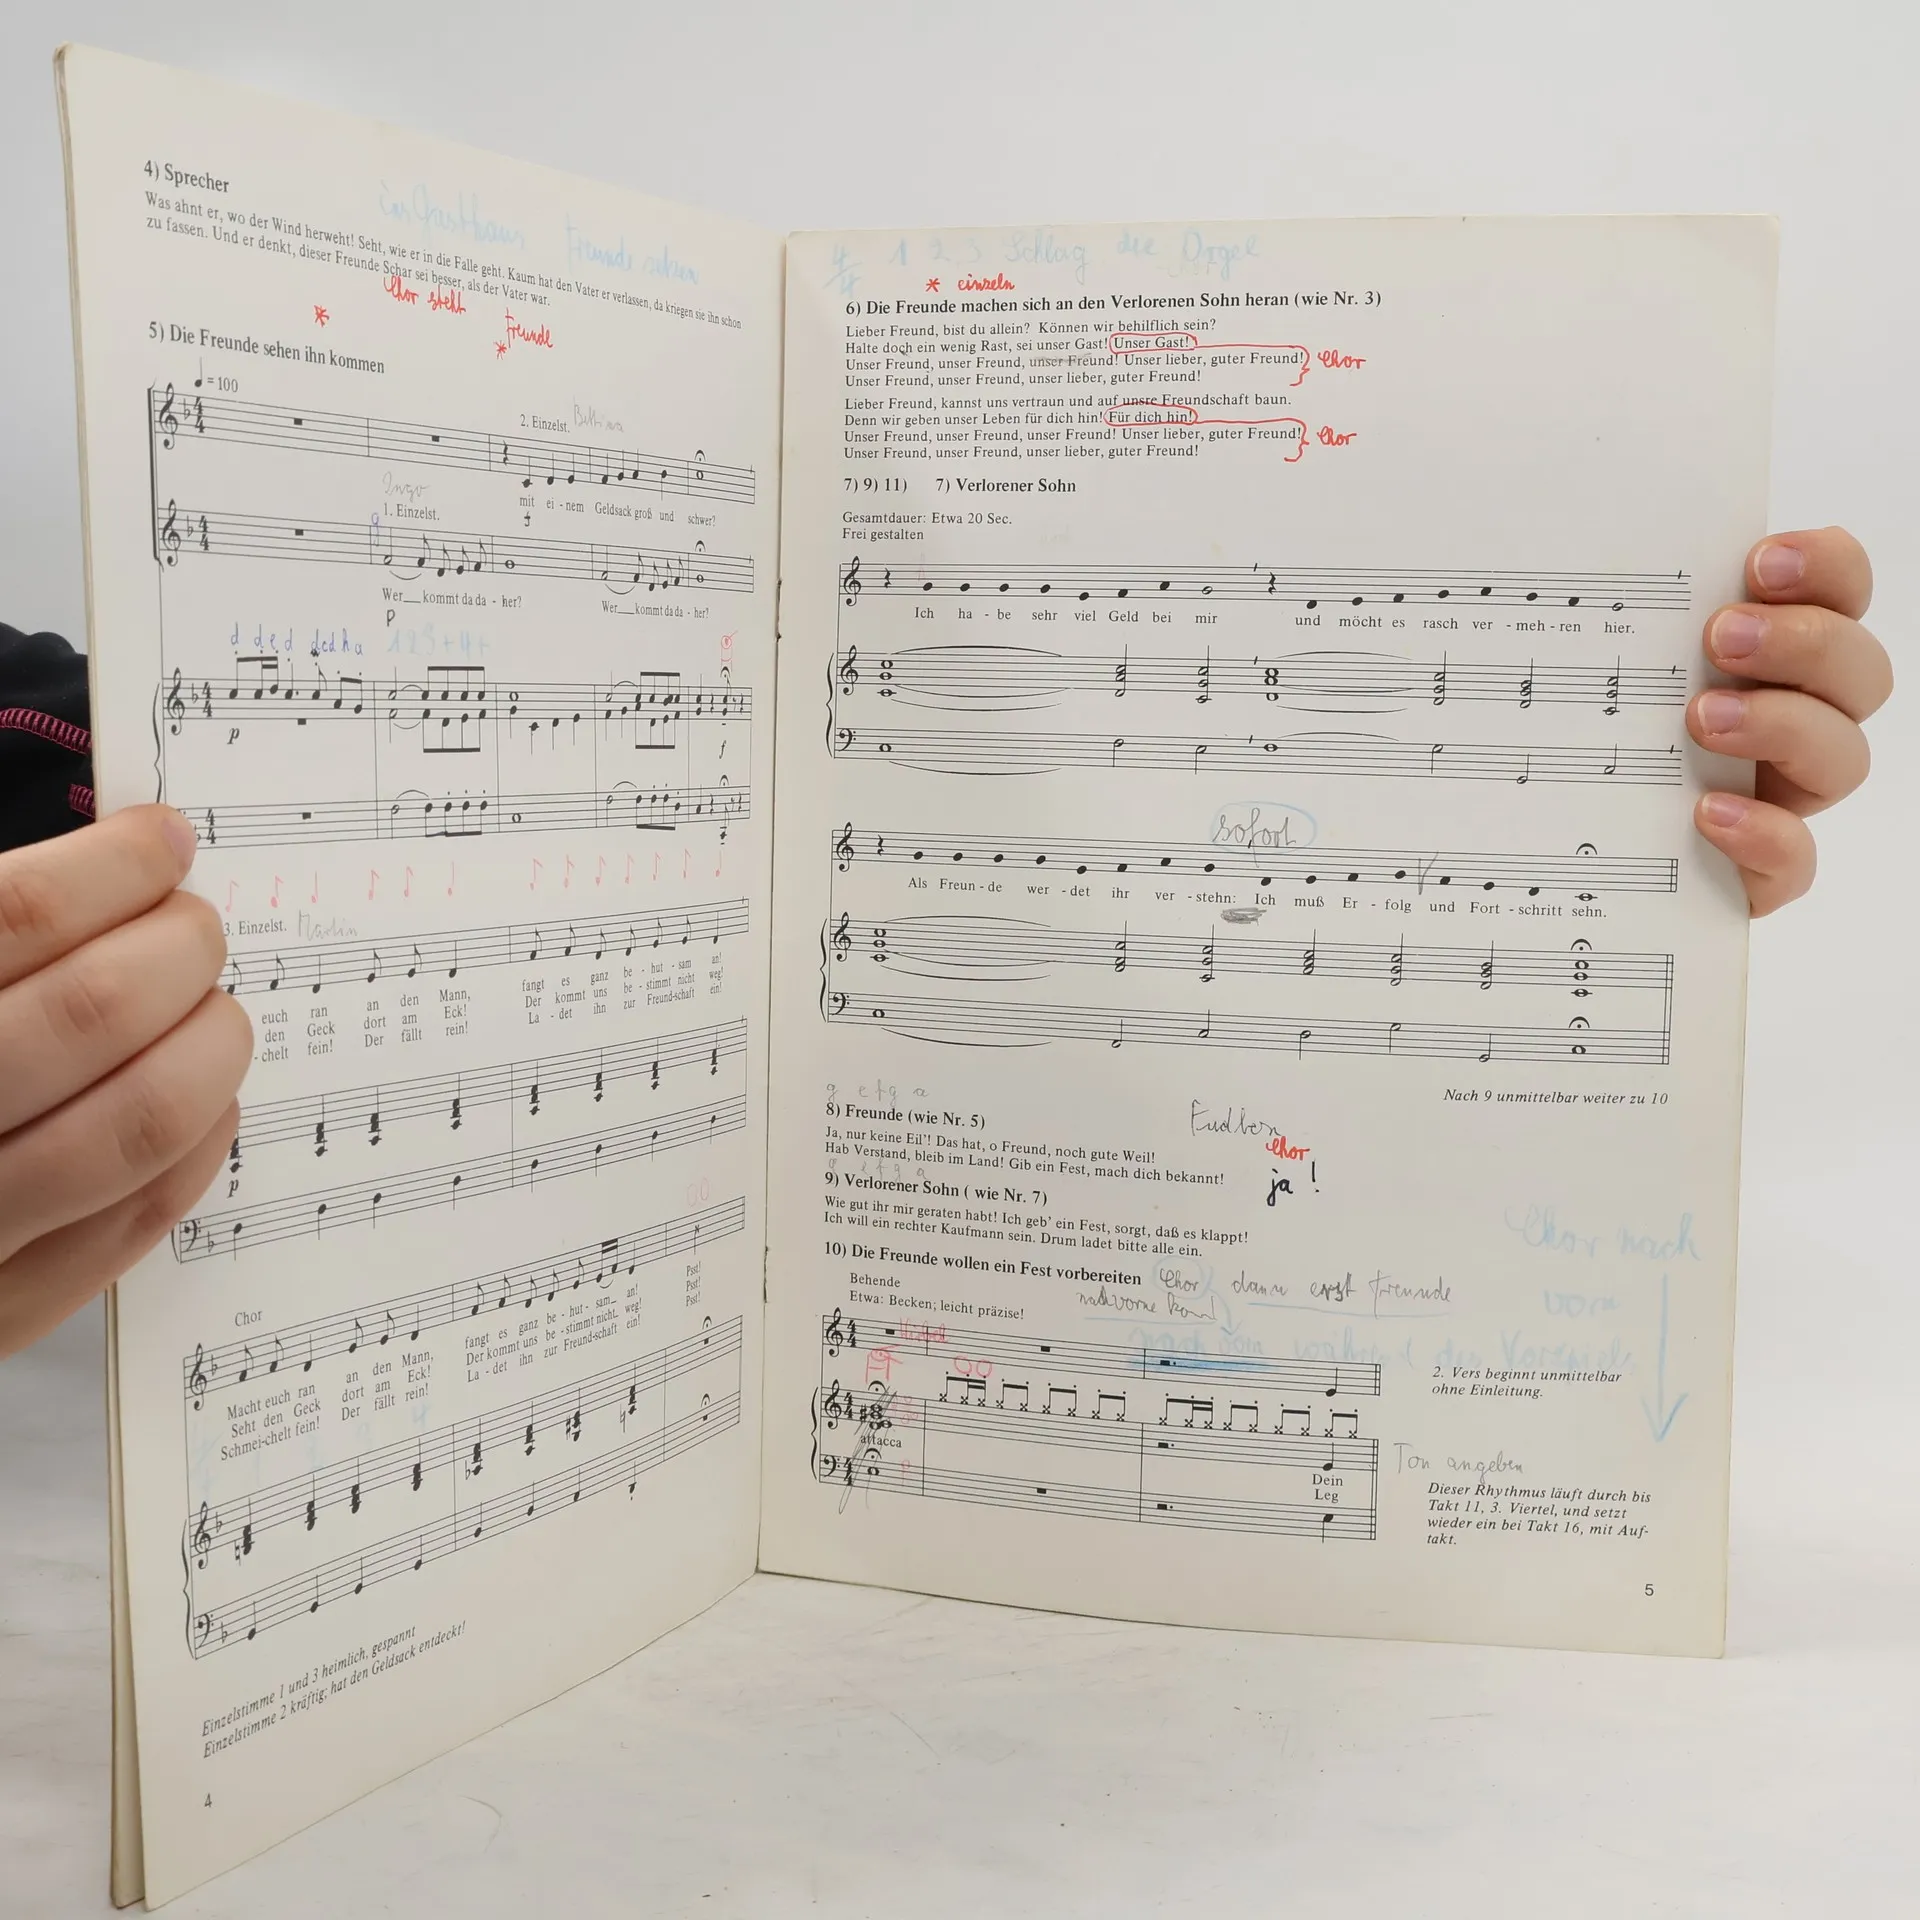 4) Sprecher
Was ahnt er, wo der Wind herweht! Seht, wie er in die Falle geht. Kaum hat den Vater er verlassen, da kriegen sie ihn schon
zu fassen. Und er denkt, dieser Freunde Schar sei besser, als der Vater war.
ins Gasthaus Freunde
Chor steht
* Freunde
*
5) Die Freunde sehen ihn kommen
= 100
2. Einzelst. Bettina
mit ei - nem Geldsack groß und schwer?
f
Ingo
1. Einzelst.
g
Wer kommt da da - her? Wer kommt da da - her?
p
d d e d d c d h a 1 2 3 + 4 +
p
f
3. Einzelst. Martin
euch ran an den Mann, fangt es ganz be - hut - sam an!
den Geck dort am Eck! Der kommt uns be - stimmt nicht weg!
- chelt fein! Der fällt rein! La - det ihn zur Freund-schaft ein!
p
Chor
Macht euch ran an den Mann, fangt es ganz be - hut - sam an! Psst!
Seht den Geck dort am Eck! Der kommt uns be - stimmt nicht weg! Psst!
Schmei-chelt fein! Der fällt rein! La - det ihn zur Freund-schaft ein! Psst!
Einzelstimme 1 und 3 heimlich, gespannt
Einzelstimme 2 kräftig; hat den Geldsack entdeckt!
4
4/4 1 2 3 Schlag die Orgel
* einzeln
6) Die Freunde machen sich an den Verlorenen Sohn heran (wie Nr. 3)
Lieber Freund, bist du allein? Können wir behilflich sein?
Halte doch ein wenig Rast, sei unser Gast! Unser Gast!
Unser Freund, unser Freund, unser Freund! Unser lieber, guter Freund! Chor
Unser Freund, unser Freund, unser lieber, guter Freund!
Lieber Freund, kannst uns vertraun und auf unsre Freundschaft baun.
Denn wir geben unser Leben für dich hin! Für dich hin!
Unser Freund, unser Freund, unser Freund! Unser lieber, guter Freund! Chor
Unser Freund, unser Freund, unser lieber, guter Freund!
7) 9) 11) 7) Verlorener Sohn
Gesamtdauer: Etwa 20 Sec.
Frei gestalten
Ich ha - be sehr viel Geld bei mir und möcht es rasch ver - meh - ren hier.
sofort
Als Freun - de wer - det ihr ver - stehn: Ich muß Er - folg und Fort - schritt sehn.
Nach 9 unmittelbar weiter zu 10
g e f g a
8) Freunde (wie Nr. 5)
Ja, nur keine Eil'! Das hat, o Freund, noch gute Weil!
Hab Verstand, bleib im Land! Gib ein Fest, mach dich bekannt!
Chor
ja!
g e f g a
9) Verlorener Sohn ( wie Nr. 7)
Wie gut ihr mir geraten habt! Ich geb' ein Fest, sorgt, daß es klappt!
Ich will ein rechter Kaufmann sein. Drum ladet bitte alle ein.
Chor nach
vorn
10) Die Freunde wollen ein Fest vorbereiten Chor dann erst Freunde
nach vorne
nach vorn während des Vorspiels
Behende
Etwa: Becken; leicht präzise!
2. Vers beginnt unmittelbar
ohne Einleitung.
attacca
Dein
Leg
Ton angeben
Dieser Rhythmus läuft durch bis
Takt 11, 3. Viertel, und setzt
wieder ein bei Takt 16, mit Auf-
takt.
5